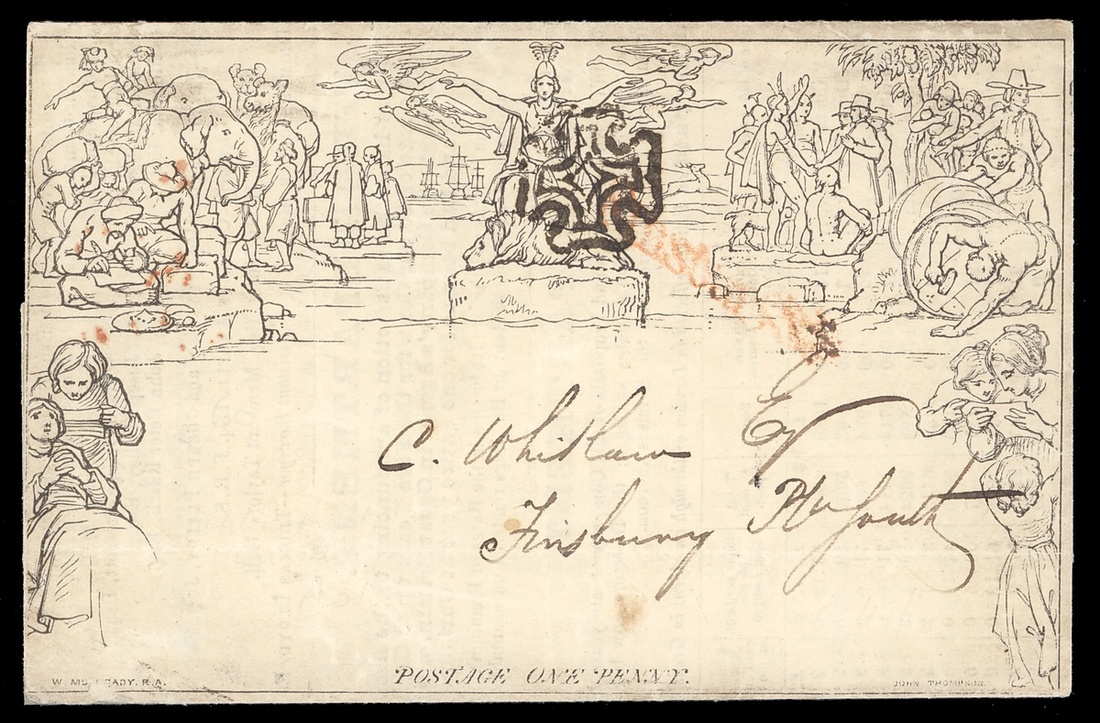 C. Whitlaw Esqr
Finsbury Pl South
POSTAGE ONE PENNY.
W. MULREADY. R.A.
JOHN THOMPSON.